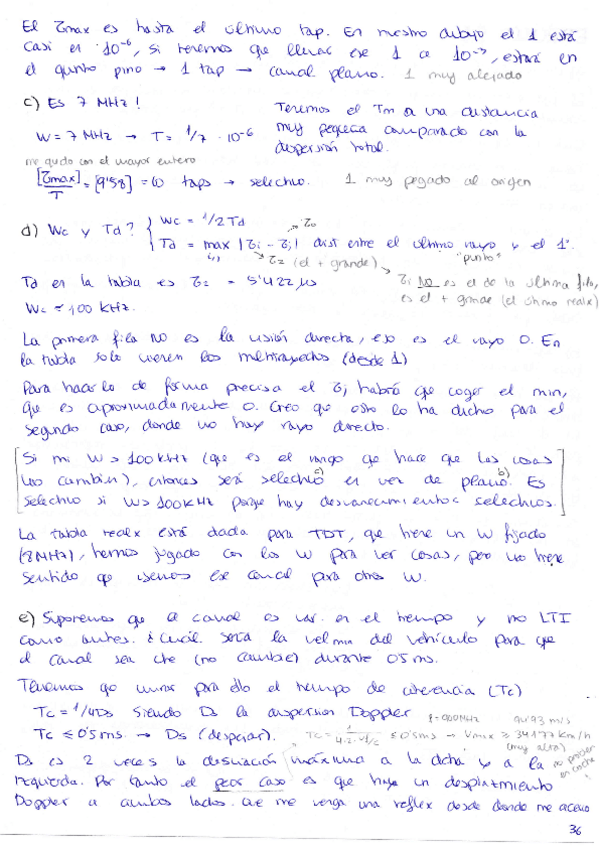 El τmax es hasta el último tap. En nuestro dibujo el 1 está
casi en 10⁻⁶, si tenemos que llevar ese 1 a 10⁻³, estará en
el quinto pino → 1 tap → canal plano. 1 muy alejado
c) Es 7 MHz!
W = 7 MHz → T = 1/7 · 10⁻⁶
me quedo con el mayor entero
[τmax]/T = [9'58] = 10 taps → selectivo.
Tenemos el Tm a una distancia
muy pequeña comparado con la
dispersión total.
1 muy pegado al origen
d) Wc y Td? { Wc = 1/2Td
Td = max |τi - τj| dist entre el último rayo y el 1º
i,j
τ₀
τ₂ (el + grande)
"punto"
Td en la tabla es τ₂ = 5'422 μs
τi NO es el de la última fila,
es el + grande (el último realx)
Wc ≈ 100 KHz.
La primera fila NO es la visión directa, eso es el rayo 0. En
la tabla solo vienen los multitrayectos (desde 1)
Para hacerlo de forma precisa el τj habría que coger el min,
que es aproximadamente 0. Creo que esto lo ha dicho para el
segundo caso, donde no hay rayo directo.
Si mi W > 100 KHz (que es el rango que hace que las cosas
no cambien), entonces será selectivo c) en vez de plano b). Es
selectivo si W > 100 KHz porque hay desvanecimientos selectivos.
La tabla realx está dada para TDT, que tiene un W fijado
(8MHz), hemos jugado con los W para ver cosas, pero no tiene
sentido que usemos ese canal para otros W.
e) Suponemos que el canal es var. en el tiempo y no LTI
como antes. ¿Cuál sería la vel min del vehículo para que
el canal sea cte (no cambie) durante 0'5 ms.
Tenemos que mirar para ello el tiempo de coherencia (Tc)
Tc = 1/4Ds siendo Ds la dispersión Doppler
f = 900MHz
Tc ≤ 0'5 ms → Ds (despejar). Tc = 1/4·2·vf/c ≤ 0'5ms → Vmax ≥ 341'77 km/h
(muy alta)
Ds es 2 veces la desviación máxima a la dcha y a la
izquierda. Por tanto el peor caso es que haya un desplazamiento
Doppler a ambos lados. Que me venga una reflex desde donde me acerco
36